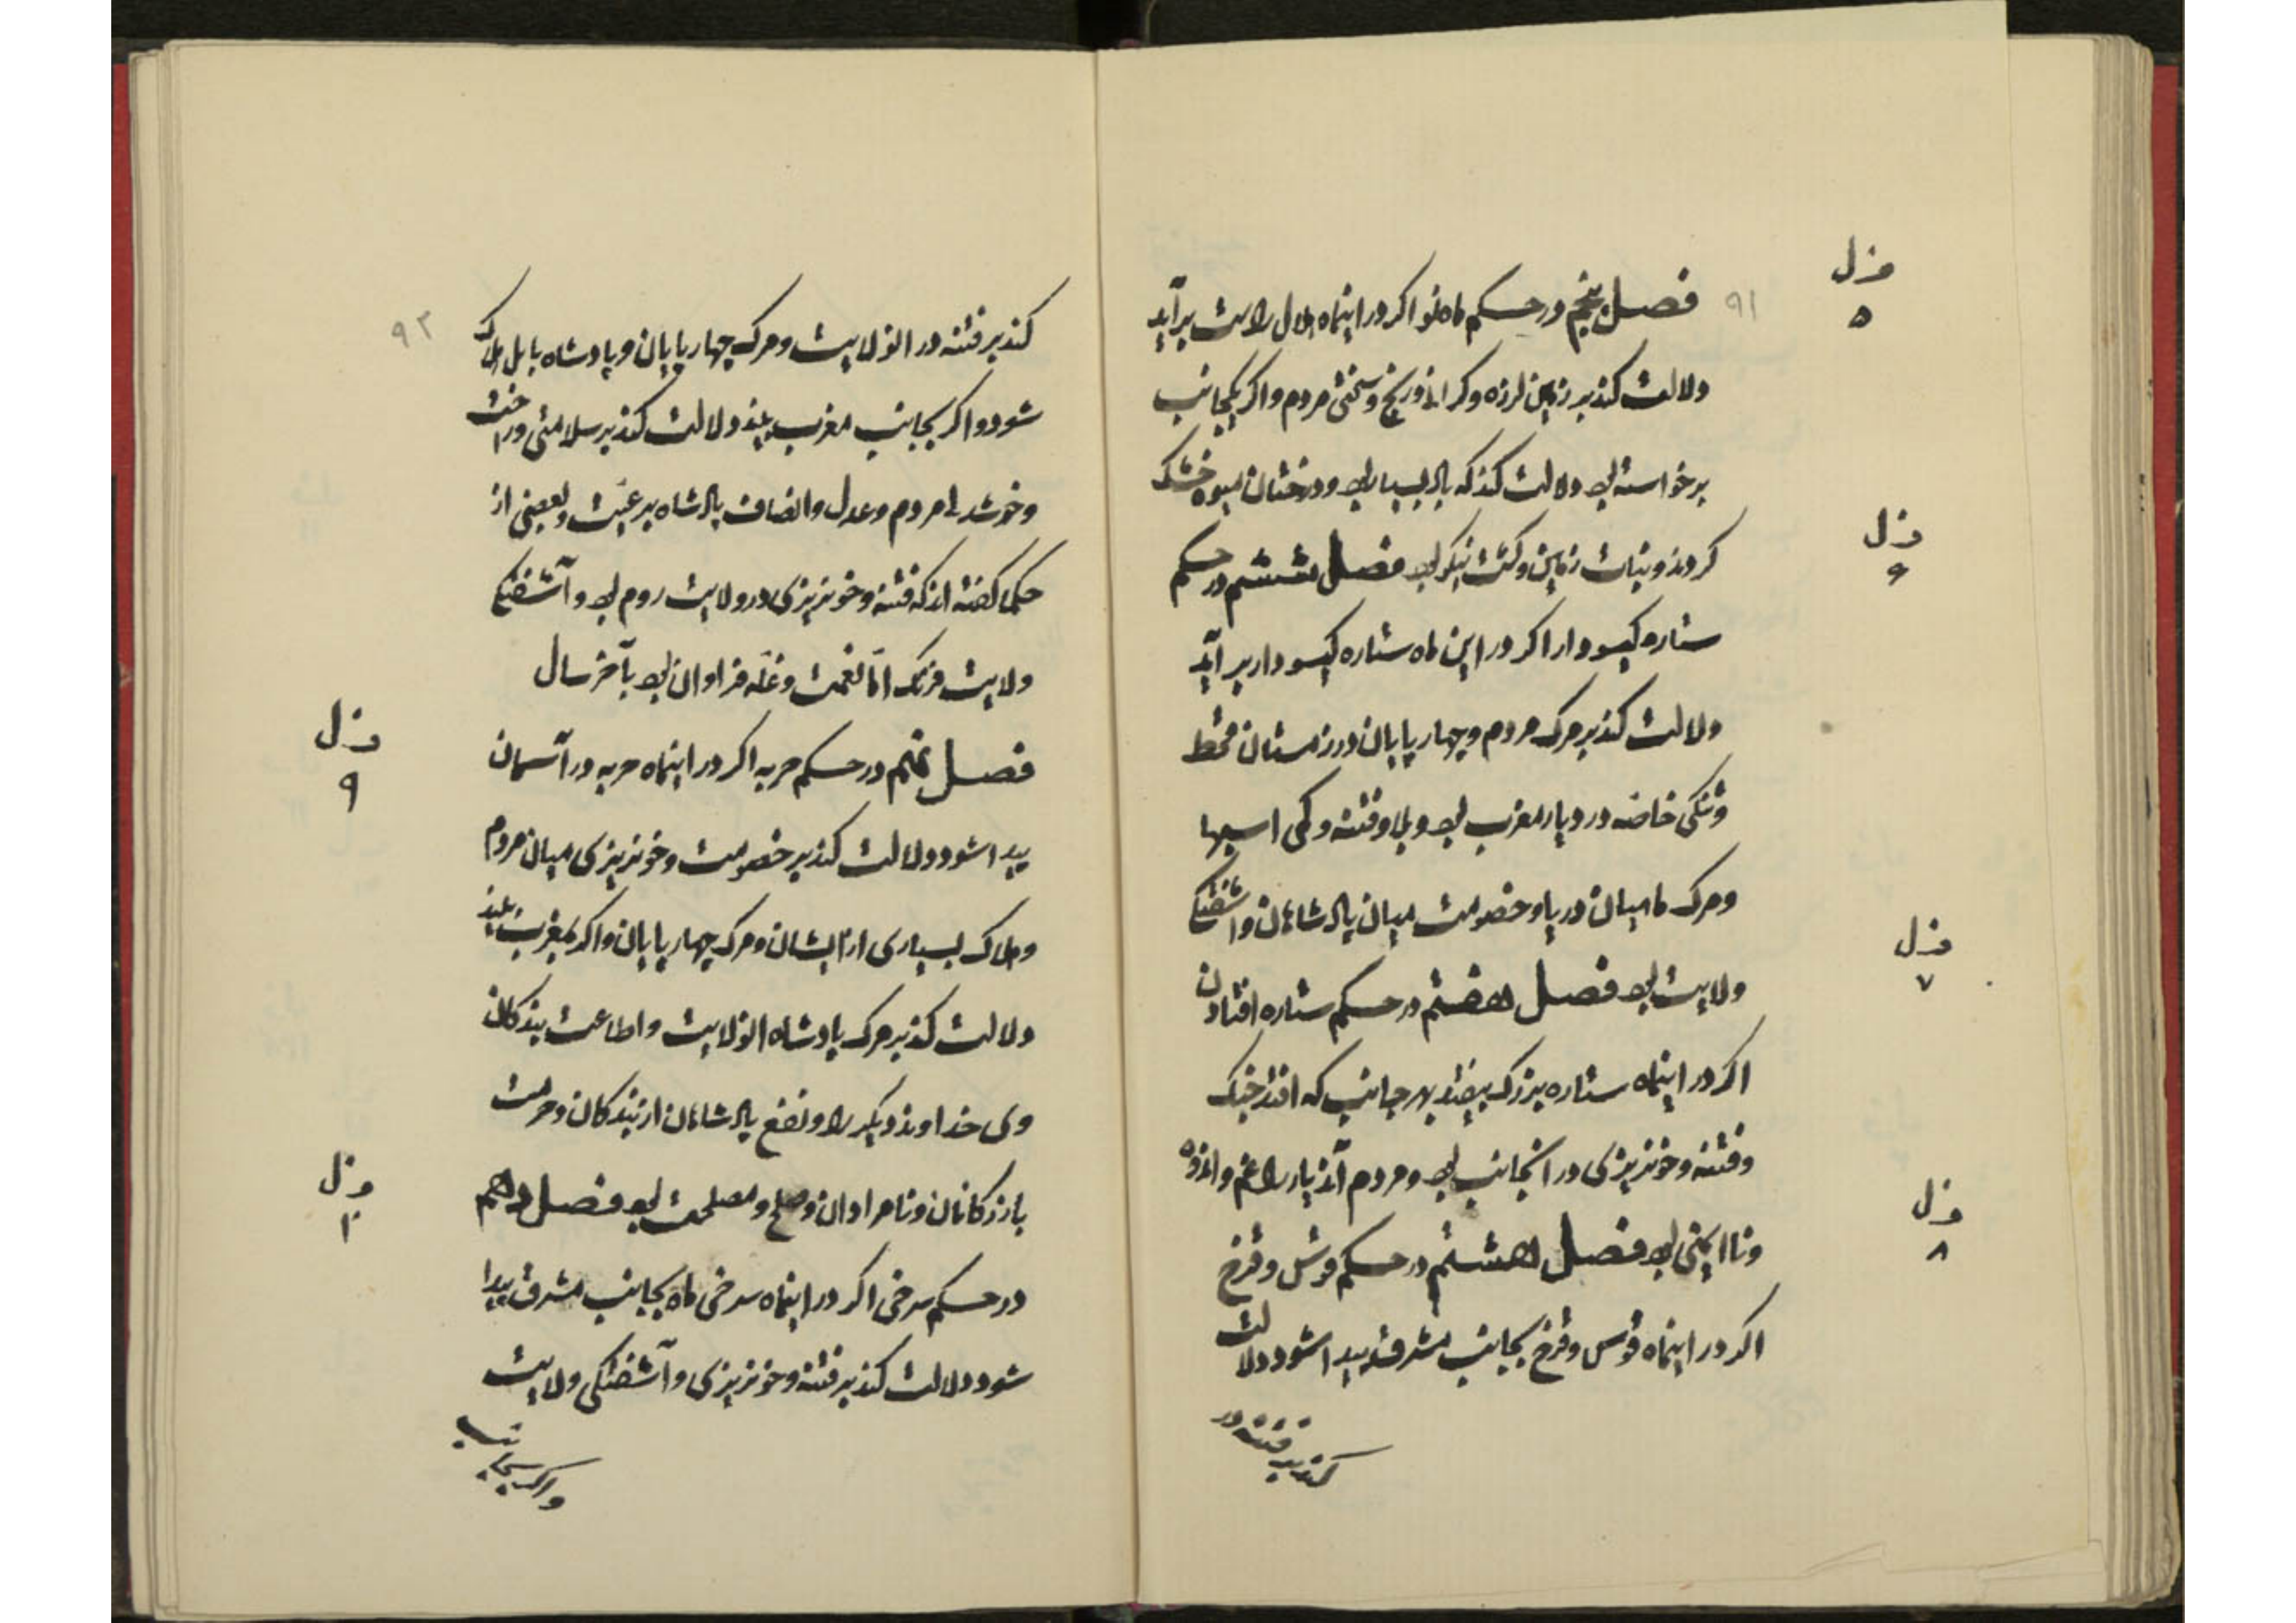 فصل پنجم در حکم ماه نو اکر در اینماه هلال راست برآید
دلالت کند بر زمین لرزه و کرانی و رنج و سختی مردم و اکر بیکجانب
برخواسته بود دلالت کند که باد بسیار بود و درختان میوه خشک
کردند و نبات زمین و کشت نیکو بود فصل ششم در حکم
ستاره کیسودار اکر در این ماه ستاره کیسودار بر آید
دلالت کند بر مرک مردم و چهار پایان و در زمستان قحط
و تنکی خاصه در دیار مغرب بود و بلا و فتنه و کمی اسبها
و مرک ماهیان دریا و خصومت میان پادشاهان و آشفتکی
ولایت بود فصل هفتم در حکم ستاره افتادن
اکر در اینماه ستاره بزرک بیفتد بهر جانب که افتد جنک
و فتنه و خونریزی در آنجانب بود و مردم آندیار را غم و اندوه
و ناایمنی بود فصل هشتم در حکم قوس و قزح
اکر در اینماه قوس و قزح بجانب مشرق پیدا شود دلالت
کند بر فتنه در
فزل
۵
فزل
۶
فزل
۷
فزل
۸
۹۱
کند بر فتنه در انولایت و مرک چهار پایان و پادشاه بابل هلاک
شود و اکر بجانب مغرب بیند دلالت کند بر سلامتی و راحت
و خوشدلی مردم و عدل و انصاف پادشاه بر رعیت و بعضی از
حکما کفته اند که فتنه و خونریزی در ولایت روم بود و آشفتکی
ولایت فرنک اما نعمت و غله فراوان بود تا آخر سال
فصل نهم در حکم حربه اکر در اینماه حربه در آسمان
پیدا شود دلالت کند بر خصومت و خونریزی میان مردم
و هلاک بسیاری از ایشان و مرک چهار پایان و اکر بمغرب بیند
دلالت کند بر مرک پادشاه انولایت و اطاعت بندکان
وی خداوند دیکر را و نفع پادشاهان از بندکان و حرمت
بازرکانان و نامرادان و صلح و مصلحت بود فصل دهم
در حکم سرخی اکر در اینماه سرخی ماه بجانب مشرق پیدا
شود دلالت کند بر فتنه و خونریزی و آشفتکی ولایت
و اکر بجانب
فزل
۹
فزل
۱۰
۹۲